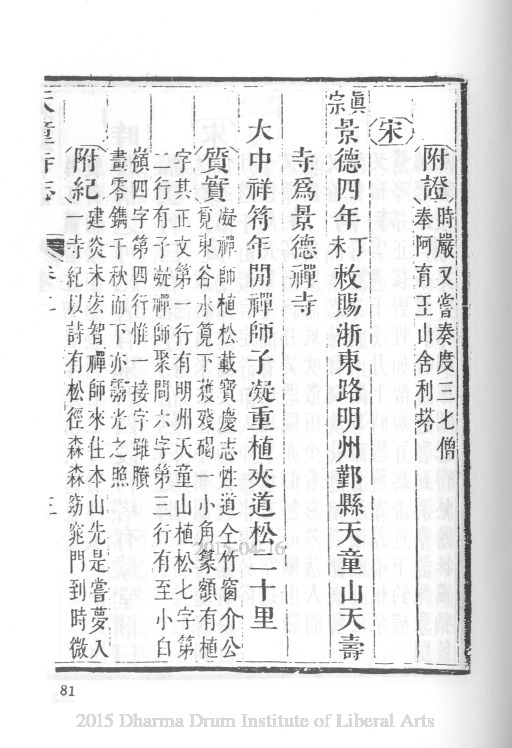 附證時嚴又嘗奏度三七僧
奉阿育王山舍利塔
宋
眞宗景德四年丁未敕賜浙東路明州鄞縣天童山天壽
寺爲景德禪寺
大中祥符年間禪師子凝重植夾道松二十里
質實凝禪師植松載寶慶志性道仝竹窗介公
筧東谷水筧下獲殘碣一小角篆額有植
字其正文第一行有明州天童山植松七字第
二行有子凝禪師聚閭六字第三行有至小白
嶺四字第四行惟一接字雖賸
畫零鐫千秋而下亦靈光之照
附紀建炎末宏智禪師來住本山先是嘗夢入
一寺紀以詩有松徑森森窈窕門到時微
天童寺志
卷二
三
2015-04-16
81
2015 Dharma Drum Institute of Liberal Arts